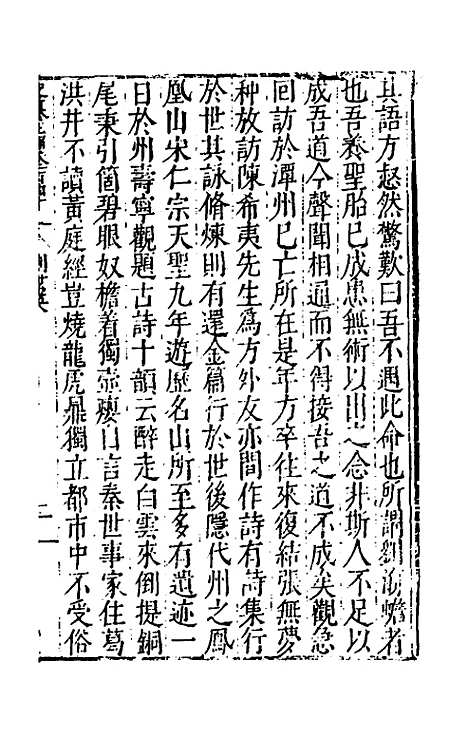 其語方怒然驚歎曰吾不遇此命也所謂劉海蟾者
也吾養聖胎已成患無術以出之念非斯人不足以
成吾道今聲聞相通而不得接吾之道不成矣觀急
囘訪於潭州已亡所在是年方卒往來復結張無夢
种放訪陳希夷先生爲方外友亦間作詩有詩集行
於世其詠脩煉則有還金篇行於世後隱代州之鳳
凰山宋仁宗天聖九年遊歷名山所至多有遺迹一
日於州壽寧觀題古詩十韻云醉走白雲來倒提銅
尾秉引箇碧眼奴檐着獨壺癭自言秦世事家住葛
洪井不讀黃庭經豈燒龍虎鼎獨立都市中不受俗